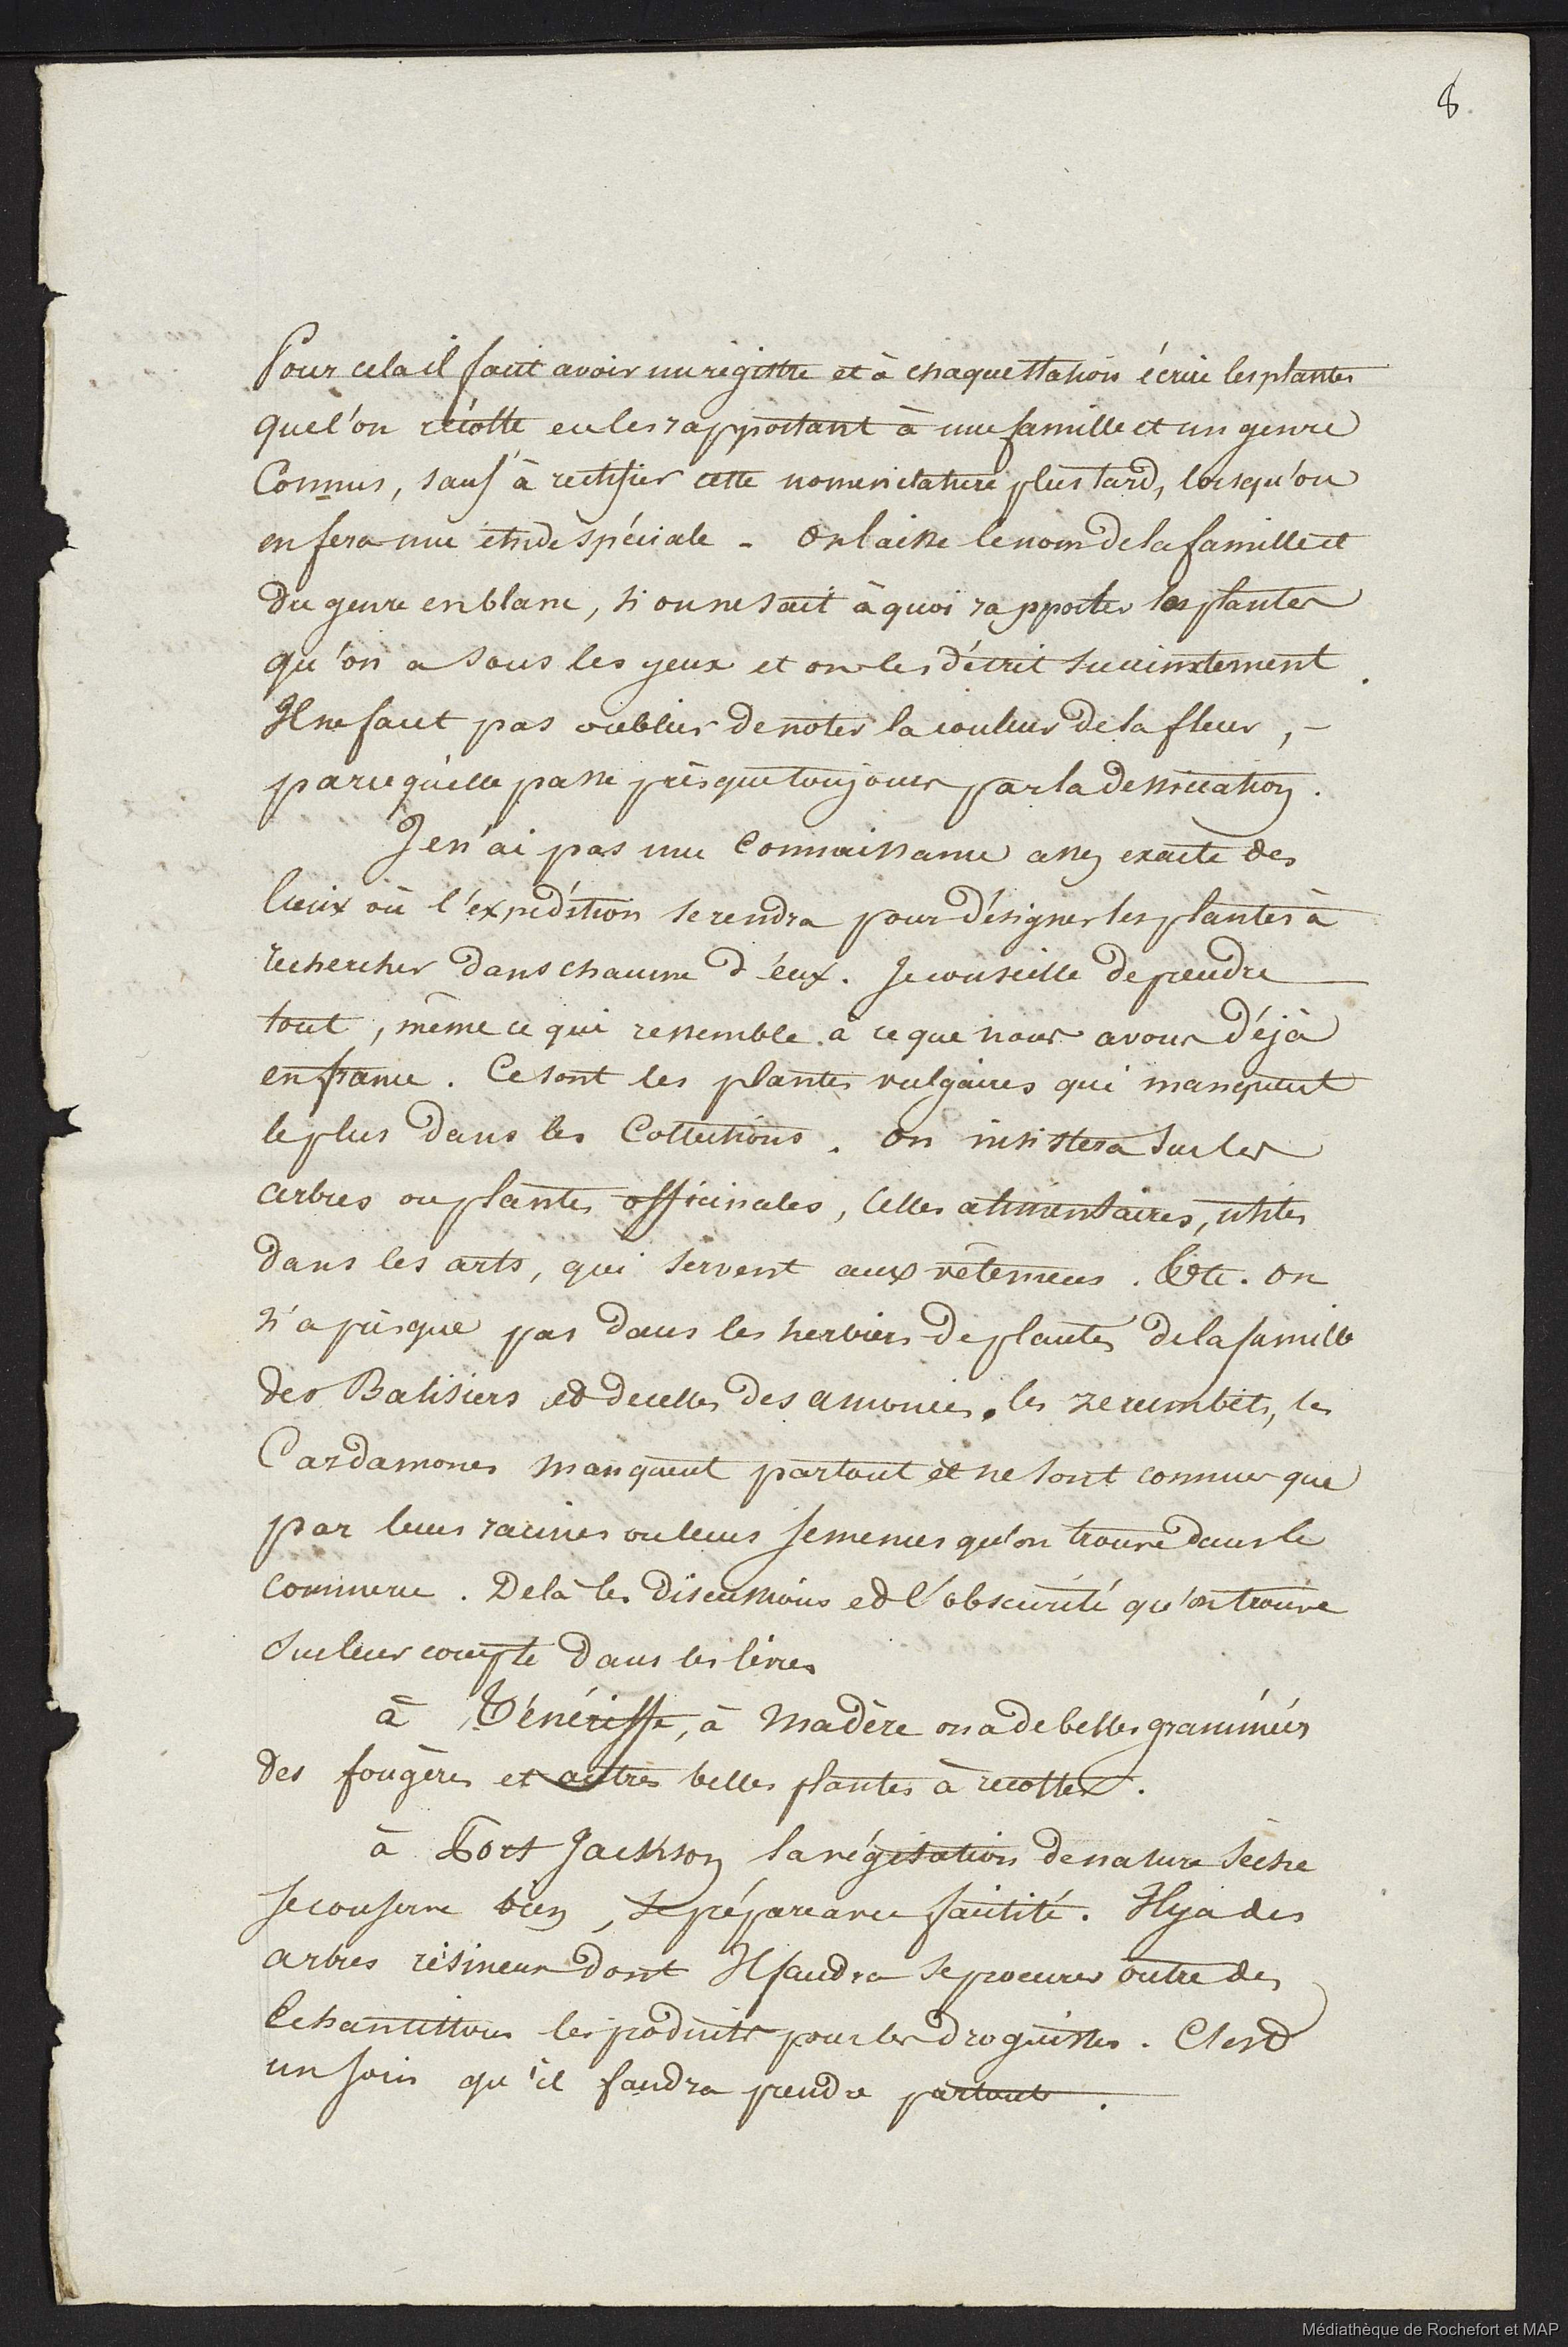 8.
Pour cela il faut avoir un registre et à chaque station écrire les plantes
que l'on récolte en les rapportant à une famille et un genre
Connus, sauf à rectifier cette nomenclature plus tard, lorsqu'on
en fera une étude spéciale - On laisse le nom de la famille et
du genre en blanc, si on ne sait à quoi rapporter les plantes
qu'on a sous les yeux et on les décrit succinctement.
Il ne faut pas oublier de noter la couleur de la fleur, -
parcequ'elle passe presque toujours par la dessiccation.
Je n'ai pas une Connaissance assez exacte des
lieux où l'expédition se rendra pour désigner les plantes à
rechercher dans chacune d'eux. Je conseille de prendre
tout, même ce qui ressemble à ce que nous avons déjà
en france. Ce sont les plantes vulgaires qui manquent
le plus dans les Collections. On insistera sur les
arbres ou plantes officinales, Celles alimentaires, utiles
dans les arts, qui servent aux vêtemens. Etc. On
n'a presque pas dans les herbiers de plantes de la famille
des Balisiers et de celles des amomées. les zerumbets, les
Cardamones manquent partout et ne sont connues que
par leurs racines ou leurs semences qu'on trouve dans le
commerce. De là les discussions et l'obscurité qu'on trouve
sur leur compte dans les livres
à Ténériffe, à Madère on a de belles graminées
des fougères et autres belles plantes à recolter.
à Port Jackson la végétation de nature sèche
se conserve bien, se prépare avec facilité. Il y a des
arbres résineux dont Il faudra se procurer outre des
Echantillons les produits pour les droguistes. C'est
un soin qu'il faudra prendre partout.
Médiathèque de Rochefort et MAP